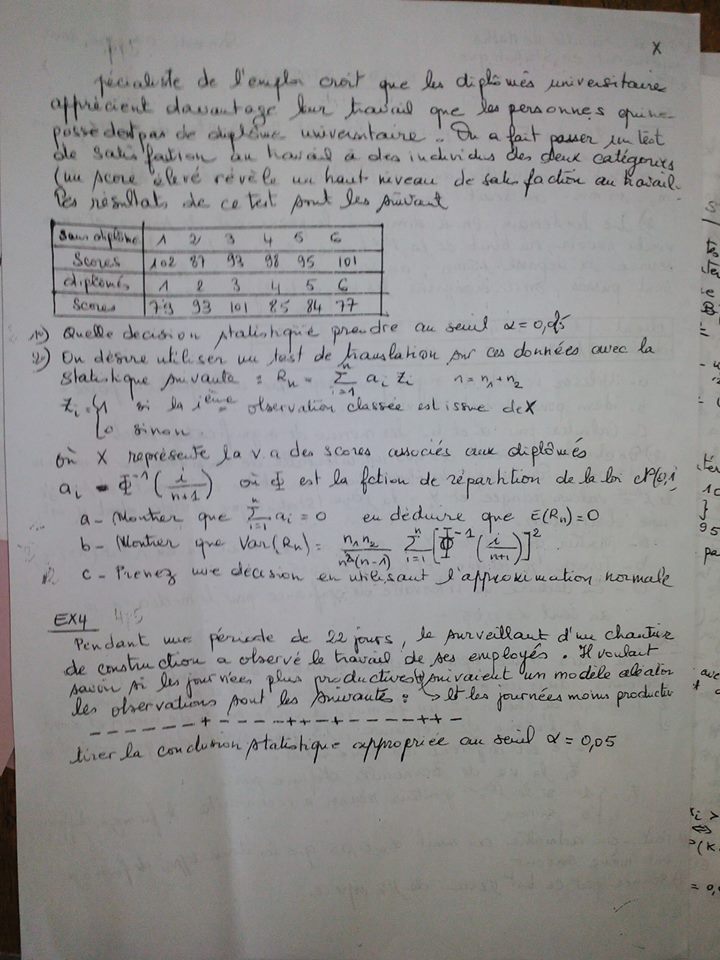 X
pécialiste de l'emploi croit que les diplômés universitaire
apprécient davantage leur travail que les personnes qui ne
possèdent pas de diplôme universitaire. On a fait passer un test
de satisfaction au travail à des individus des deux catégories
(un score élevé révèle un haut niveau de satisfaction au travail.
Les résultats de ce test sont les suivant
sans diplôme 1 2 3 4 5 6
Scores 102 87 93 98 95 101
diplômés 1 2 3 4 5 6
Scores 79 93 101 85 84 77
1°) Quelle decision statistique prendre au seuil α = 0,05
2°) On désire utiliser un test de translation sur ces données avec la
statistique suivante : Rn = Σ_{i=1}^{n} ai Zi n = n1 + n2
Zi = { 1 si la ième observation classée est issue de X
0 sinon
où X représente la v.a des scores associés aux diplômés
ai = Φ^-1 (i/(n+1)) où Φ est la fction de répartition de la loi N(0,1
a - Montrer que Σ_{i=1}^{n} ai = 0 en déduire que E(Rn) = 0
b - Montrer que Var(Rn) = n1 n2 / n(n-1) Σ_{i=1}^{n} [Φ^-1 (i/(n+1))]^2
c - Prenez une décision en utilisant l'approximation normale
EX4 4,5
Pendant une période de 22 jours, le surveillant d'un chantier
de construction a observé le travail de ses employés. Il voulait
savoir si les journées plus productives suivaient un modèle aléator
les observations sont les suivantes : → et les journées moins productiv
- - - - - - - + - - - - + + - + - - - - + + -
tirer la conclusion statistique appropriée au seuil α = 0,05